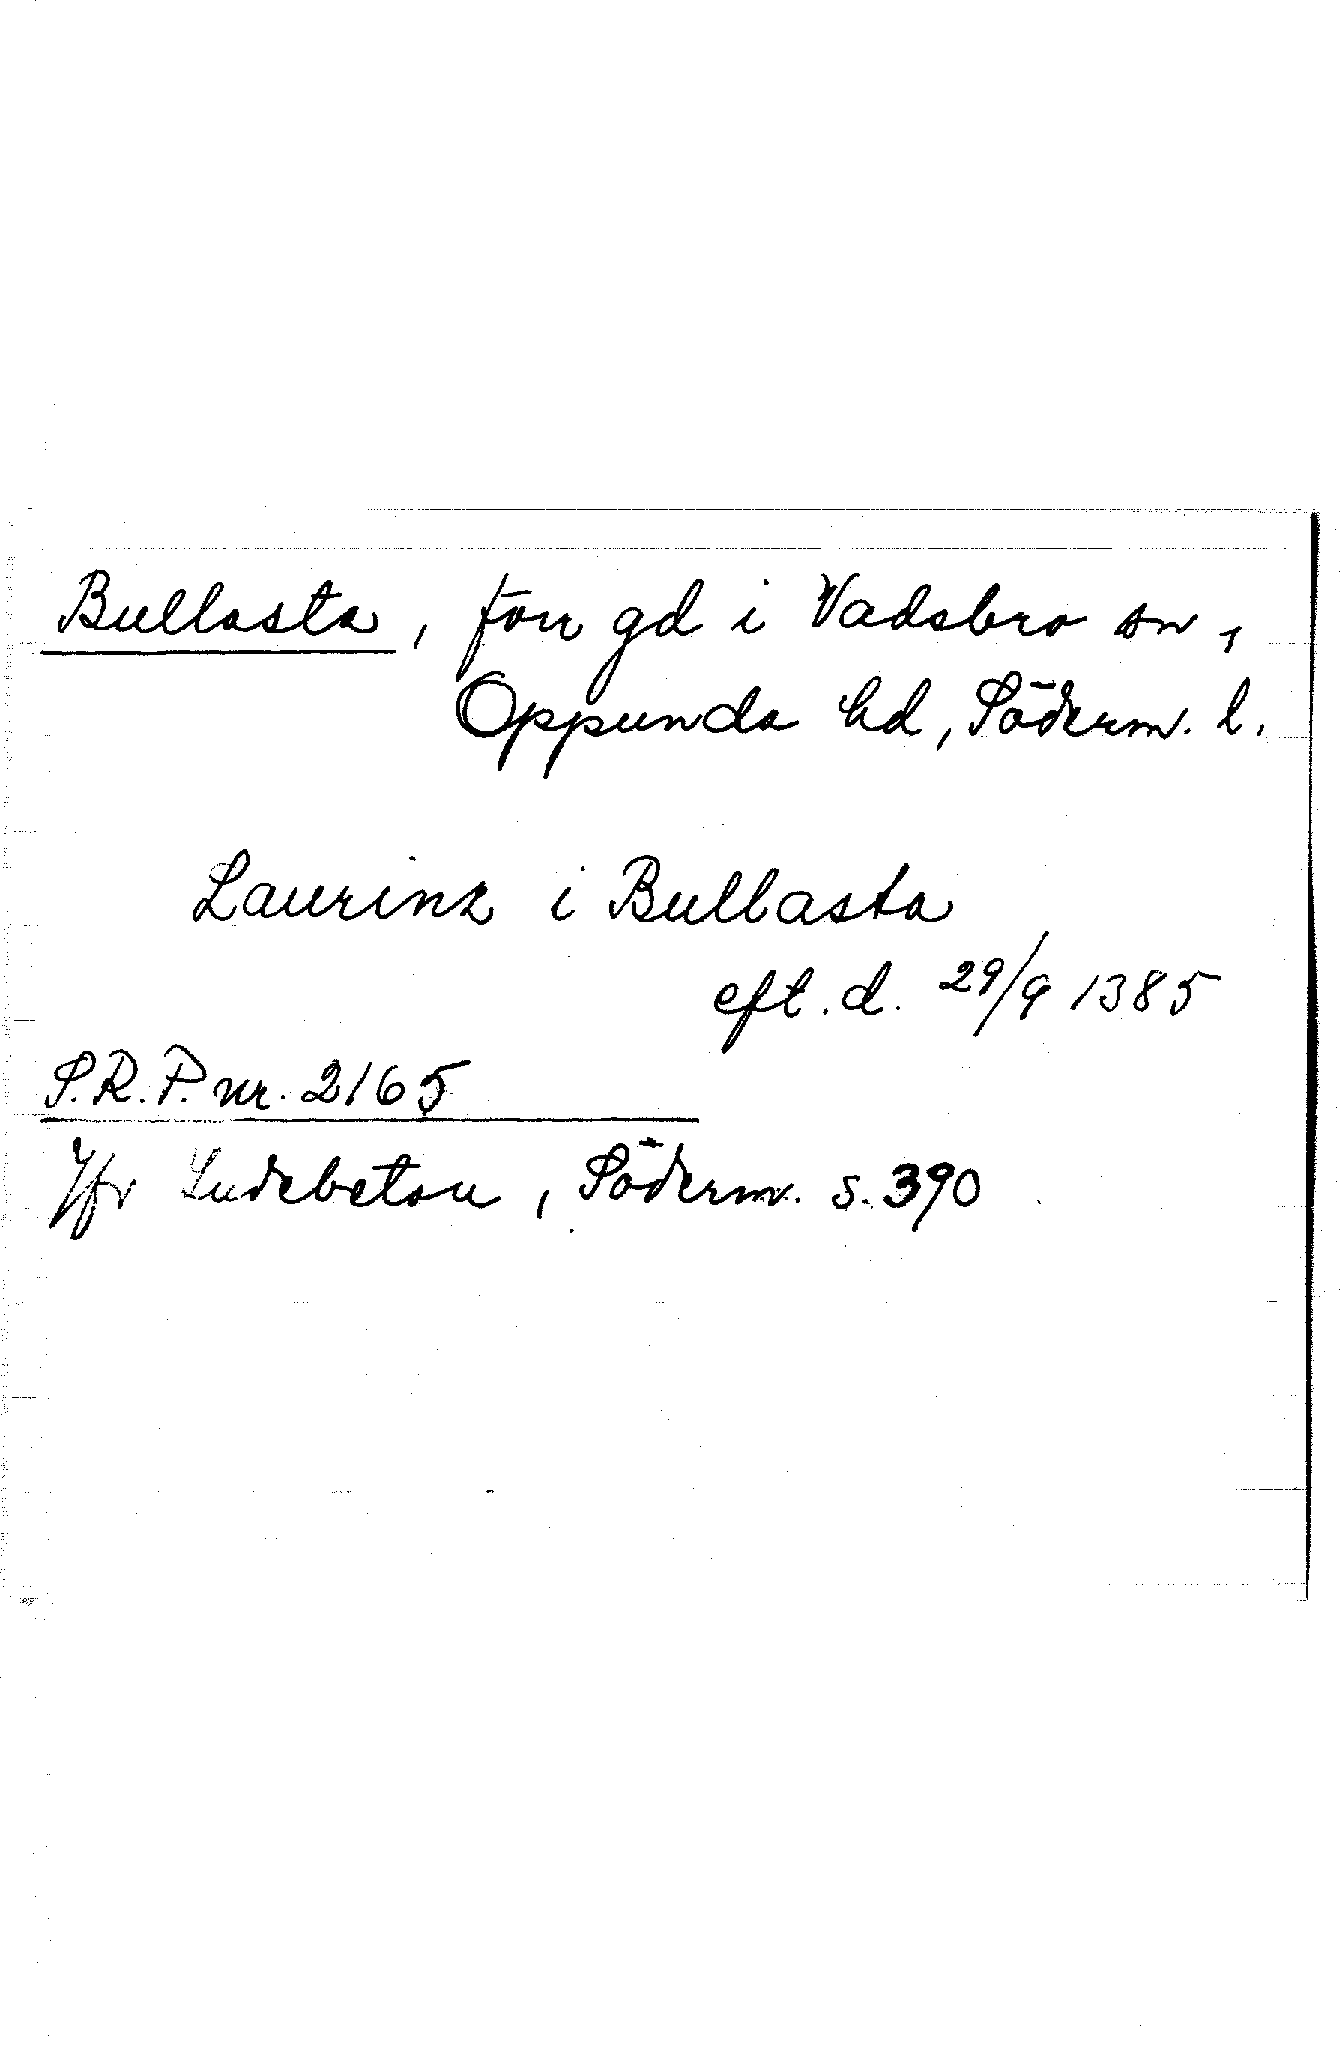 Bullasta, förr gd i Vadsbro sn,
Oppunda hd, Söderm. l.
Laurinz i Bullasta
eft. d. 29/9 1385
S.R.P. nr. 2165
Jfr Indebetou, Söderm. s. 390